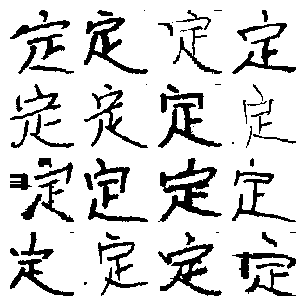 定定定定
定定定定
定定定定
定定定定